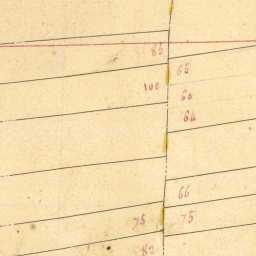 86
65
100
66
64
66
75
75
82